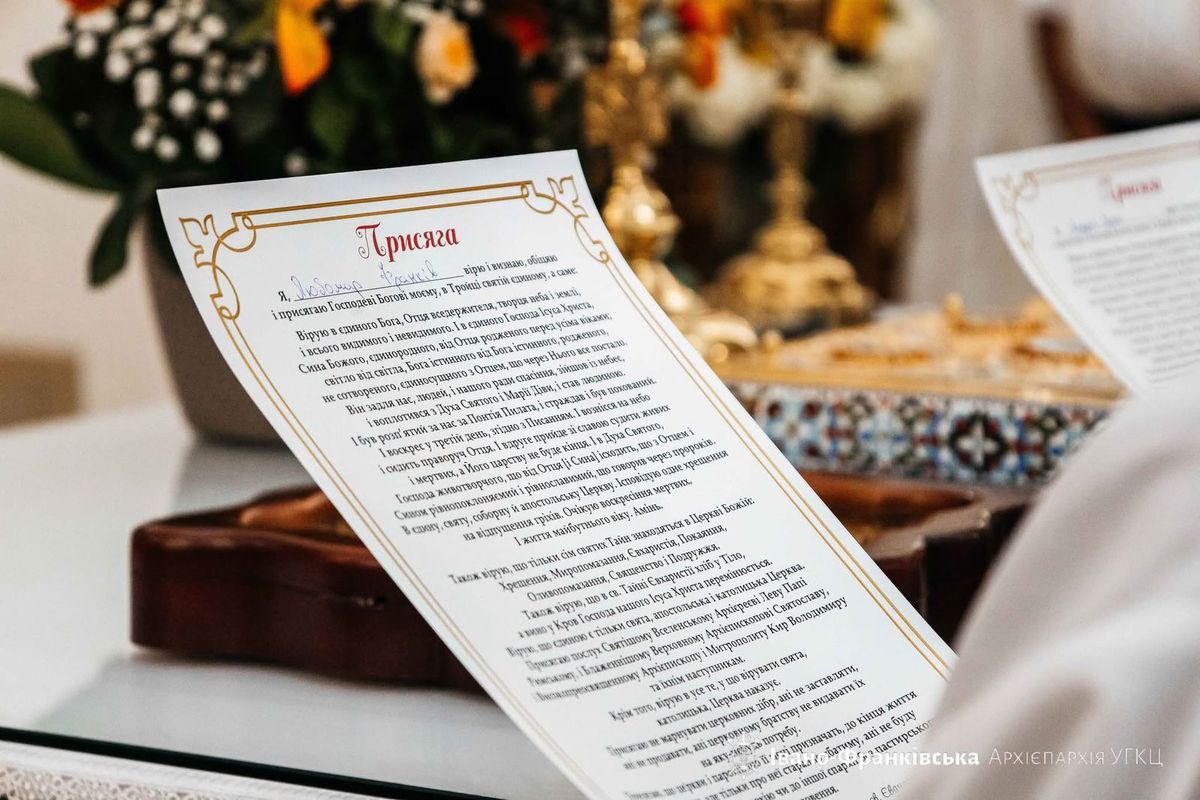 Присяга
Я, Любомир Франків вірю і визнаю, обіцяю
і присягаю Господеві Богові моєму, в Тройці святій єдиному, а саме:
Вірую в єдиного Бога, Отця вседержителя, творця неба і землі,
і всього видимого і невидимого. І в єдиного Господа Ісуса Христа,
Сина Божого, єдинородного, від Отця родженого перед усіма віками;
світло від світла, Бога істинного від Бога істинного, родженого,
не сотвореного, єдиносущного з Отцем, що через Нього все постало.
Він задля нас, людей, і нашого ради спасіння, зійшов із небес,
і воплотився з Духа Святого і Марії Діви, і став людиною.
І був розп'ятий за нас за Понтія Пилата, і страждав і був похований.
І воскрес у третій день, згідно з Писанням. І вознісся на небо
і сидить праворуч Отця. І вдруге прийде зі славою судити живих
і мертвих, а Його царству не буде кінця. І в Духа Святого,
Господа животворчого, що від Отця [і Сина] ісходить, що з Отцем і
Сином рівнопоклоняємий і рівнославимий, що говорив через пророків.
В єдину, святу, соборну й апостольську Церкву. Ісповідую одне хрещення
на відпущення гріхів. Очікую воскресіння мертвих.
І життя майбутнього віку. Амінь.
Також вірую, що тільки сім святих Тайн знаходяться в Церкві Божій:
Хрещення, Миропомазання, Євхаристія, Покаяння,
Оливопомазання, Священство і Подружжя.
Також вірую, що в св. Тайні Євхаристії хліб у Тіло,
а вино у Кров Господа нашого Ісуса Христа перемінюється.
Вірую, що єдиною є тільки свята, апостольська і католицька Церква.
Присягаю послух Святішому Вселенському Архієреєві Леву Папі
Римському, і Блаженнішому Верховному Архієпископові Святославу,
і Високопреосвященному Архієпископу і Митрополиту Кир Володимиру
та їхнім наступникам.
Крім того, вірую в усе те, у що вірувати свята,
католицька, Церква наказує.
Присягаю не марнувати церковних дібр, ані не заставляти,
ані не продавати, ані церковному братству не видавати їх
на якусь потребу.
призначать, до кінця життя
ані не буду
Присяга
Івано-Франківська Архієпархія УГКЦ